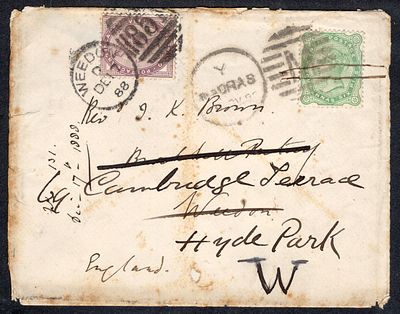 WEEDON
C
DE 17
88
185
Y
MADRAS
Rev J. K. Brown.
69 Cambridge Terrace
Weedon
Hyde Park
England.
W
131.
Dec 17th 1888